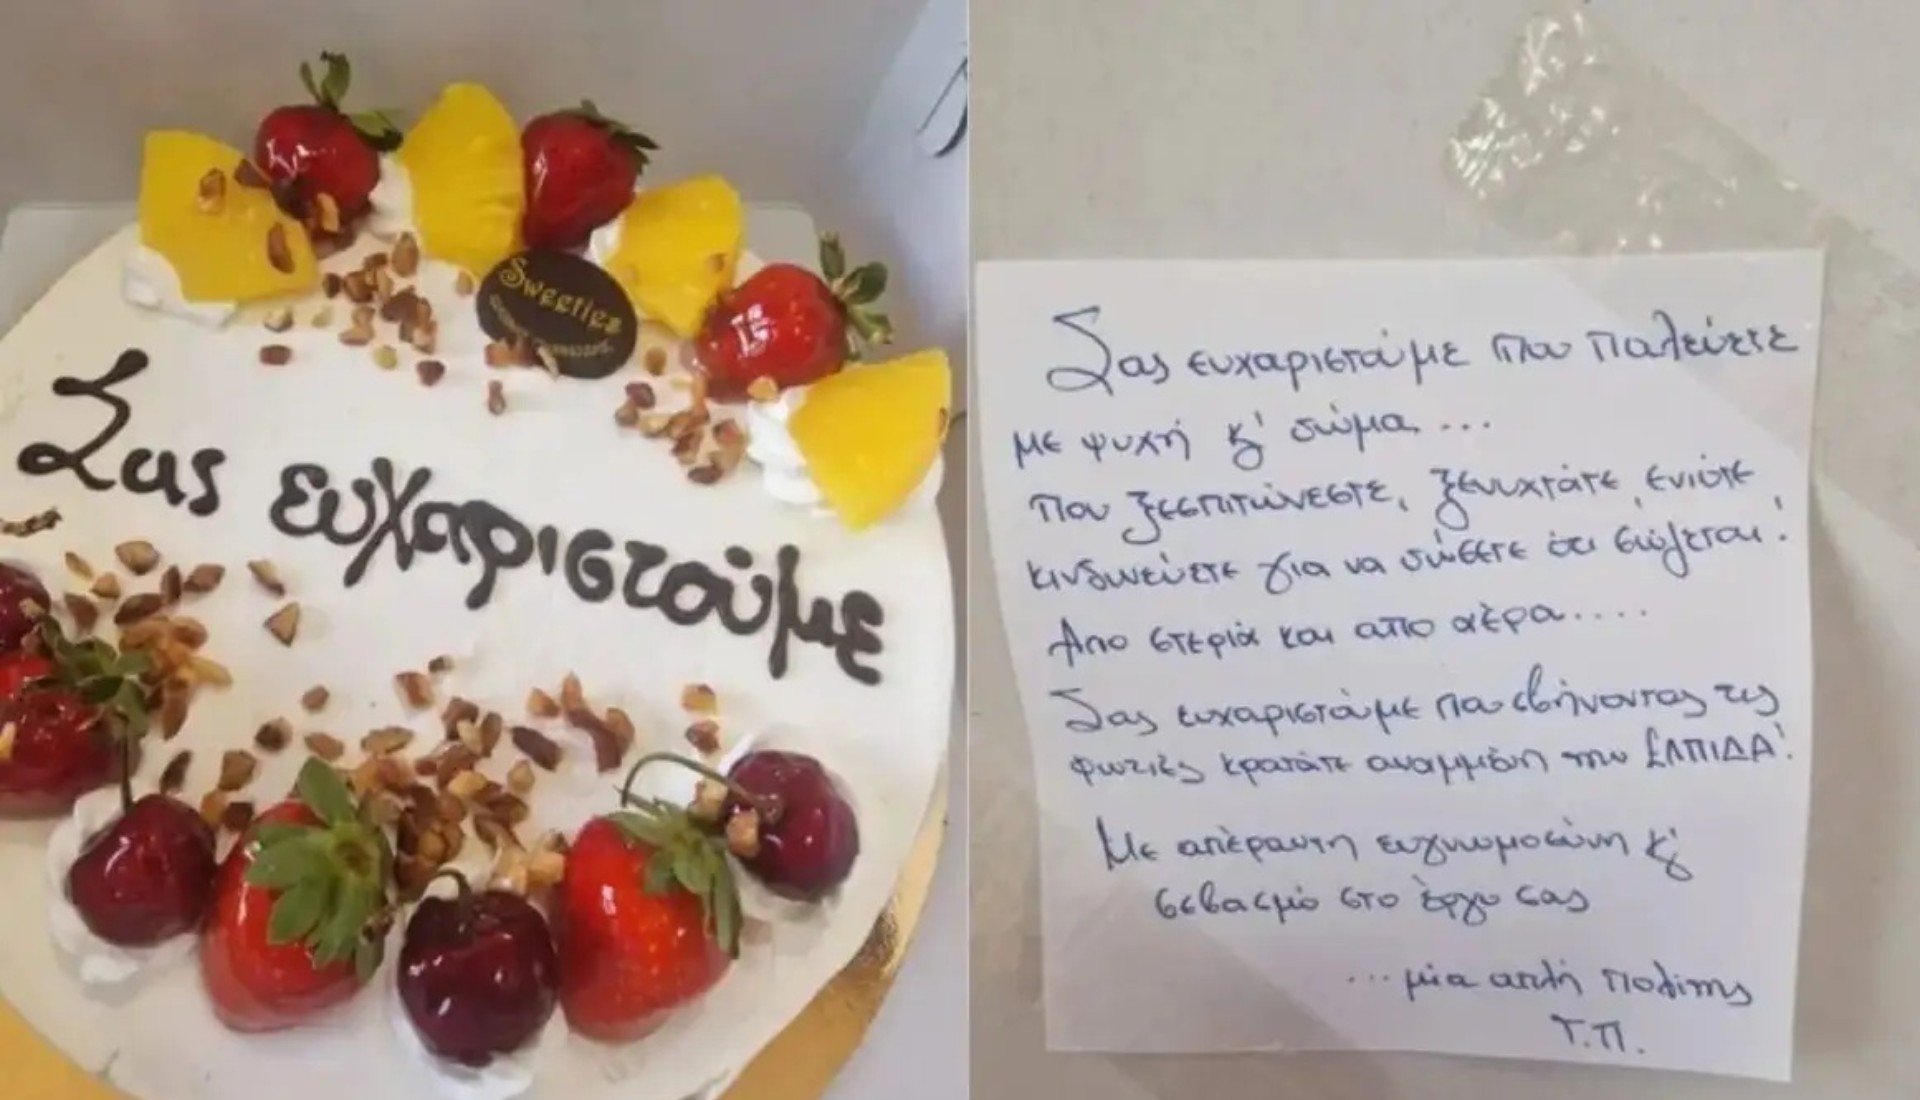 Sweeties
Σας ευχαριστούμε
Σας ευχαριστούμε που παλεύετε
με ψυχή κ' σώμα...
που ξεσπιτώνεστε, ξενυχτάτε, ενιότε
κινδυνεύετε για να σώσετε ότι σώζεται!
Από στεριά και από αέρα....
Σας ευχαριστούμε που σβήνοντας τις
φωτιές κρατάτε αναμμένη την ΕΛΠΙΔΑ!
Με απέραντη ευγνωμοσύνη κ'
σεβασμό στο έργο σας
...μία απλή πολίτης
Τ.Π.